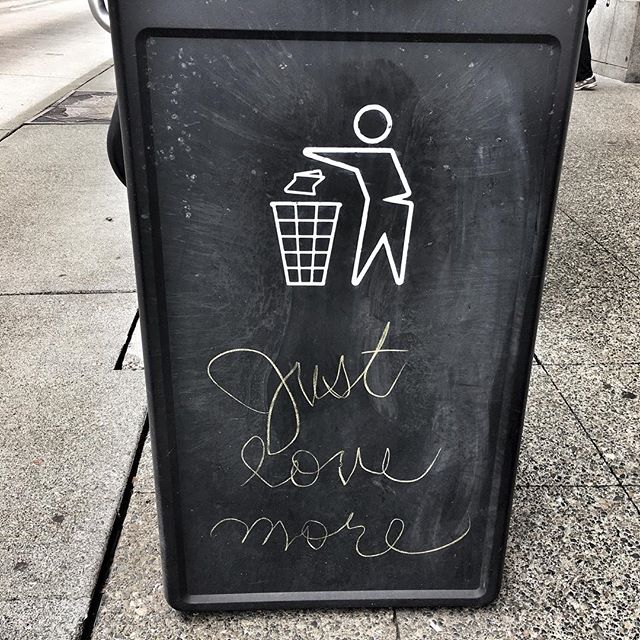 Just
love
more